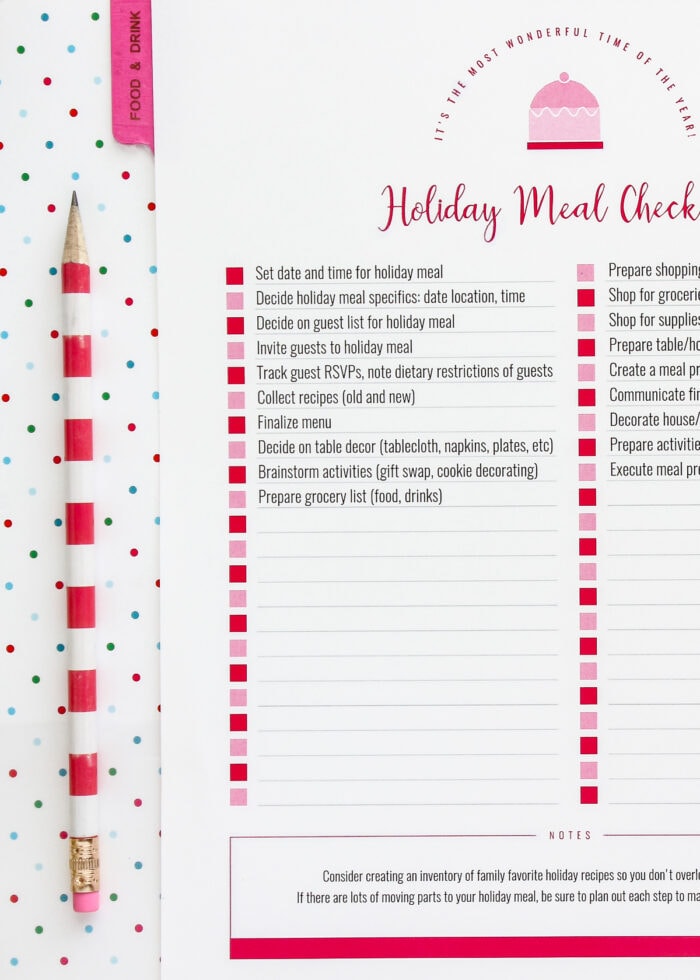 FOOD & DRINK
IT'S THE MOST WONDERFUL TIME OF THE YEAR!
Holiday Meal Check
Set date and time for holiday meal
Decide holiday meal specifics: date location, time
Decide on guest list for holiday meal
Invite guests to holiday meal
Track guest RSVPs, note dietary restrictions of guests
Collect recipes (old and new)
Finalize menu
Decide on table decor (tablecloth, napkins, plates, etc)
Brainstorm activities (gift swap, cookie decorating)
Prepare grocery list (food, drinks)
Prepare shopping
Shop for groceri
Shop for supplies
Prepare table/ho
Create a meal pr
Communicate fi
Decorate house/
Prepare activitie
Execute meal pr
NOTES
Consider creating an inventory of family favorite holiday recipes so you don't overl
If there are lots of moving parts to your holiday meal, be sure to plan out each step to ma